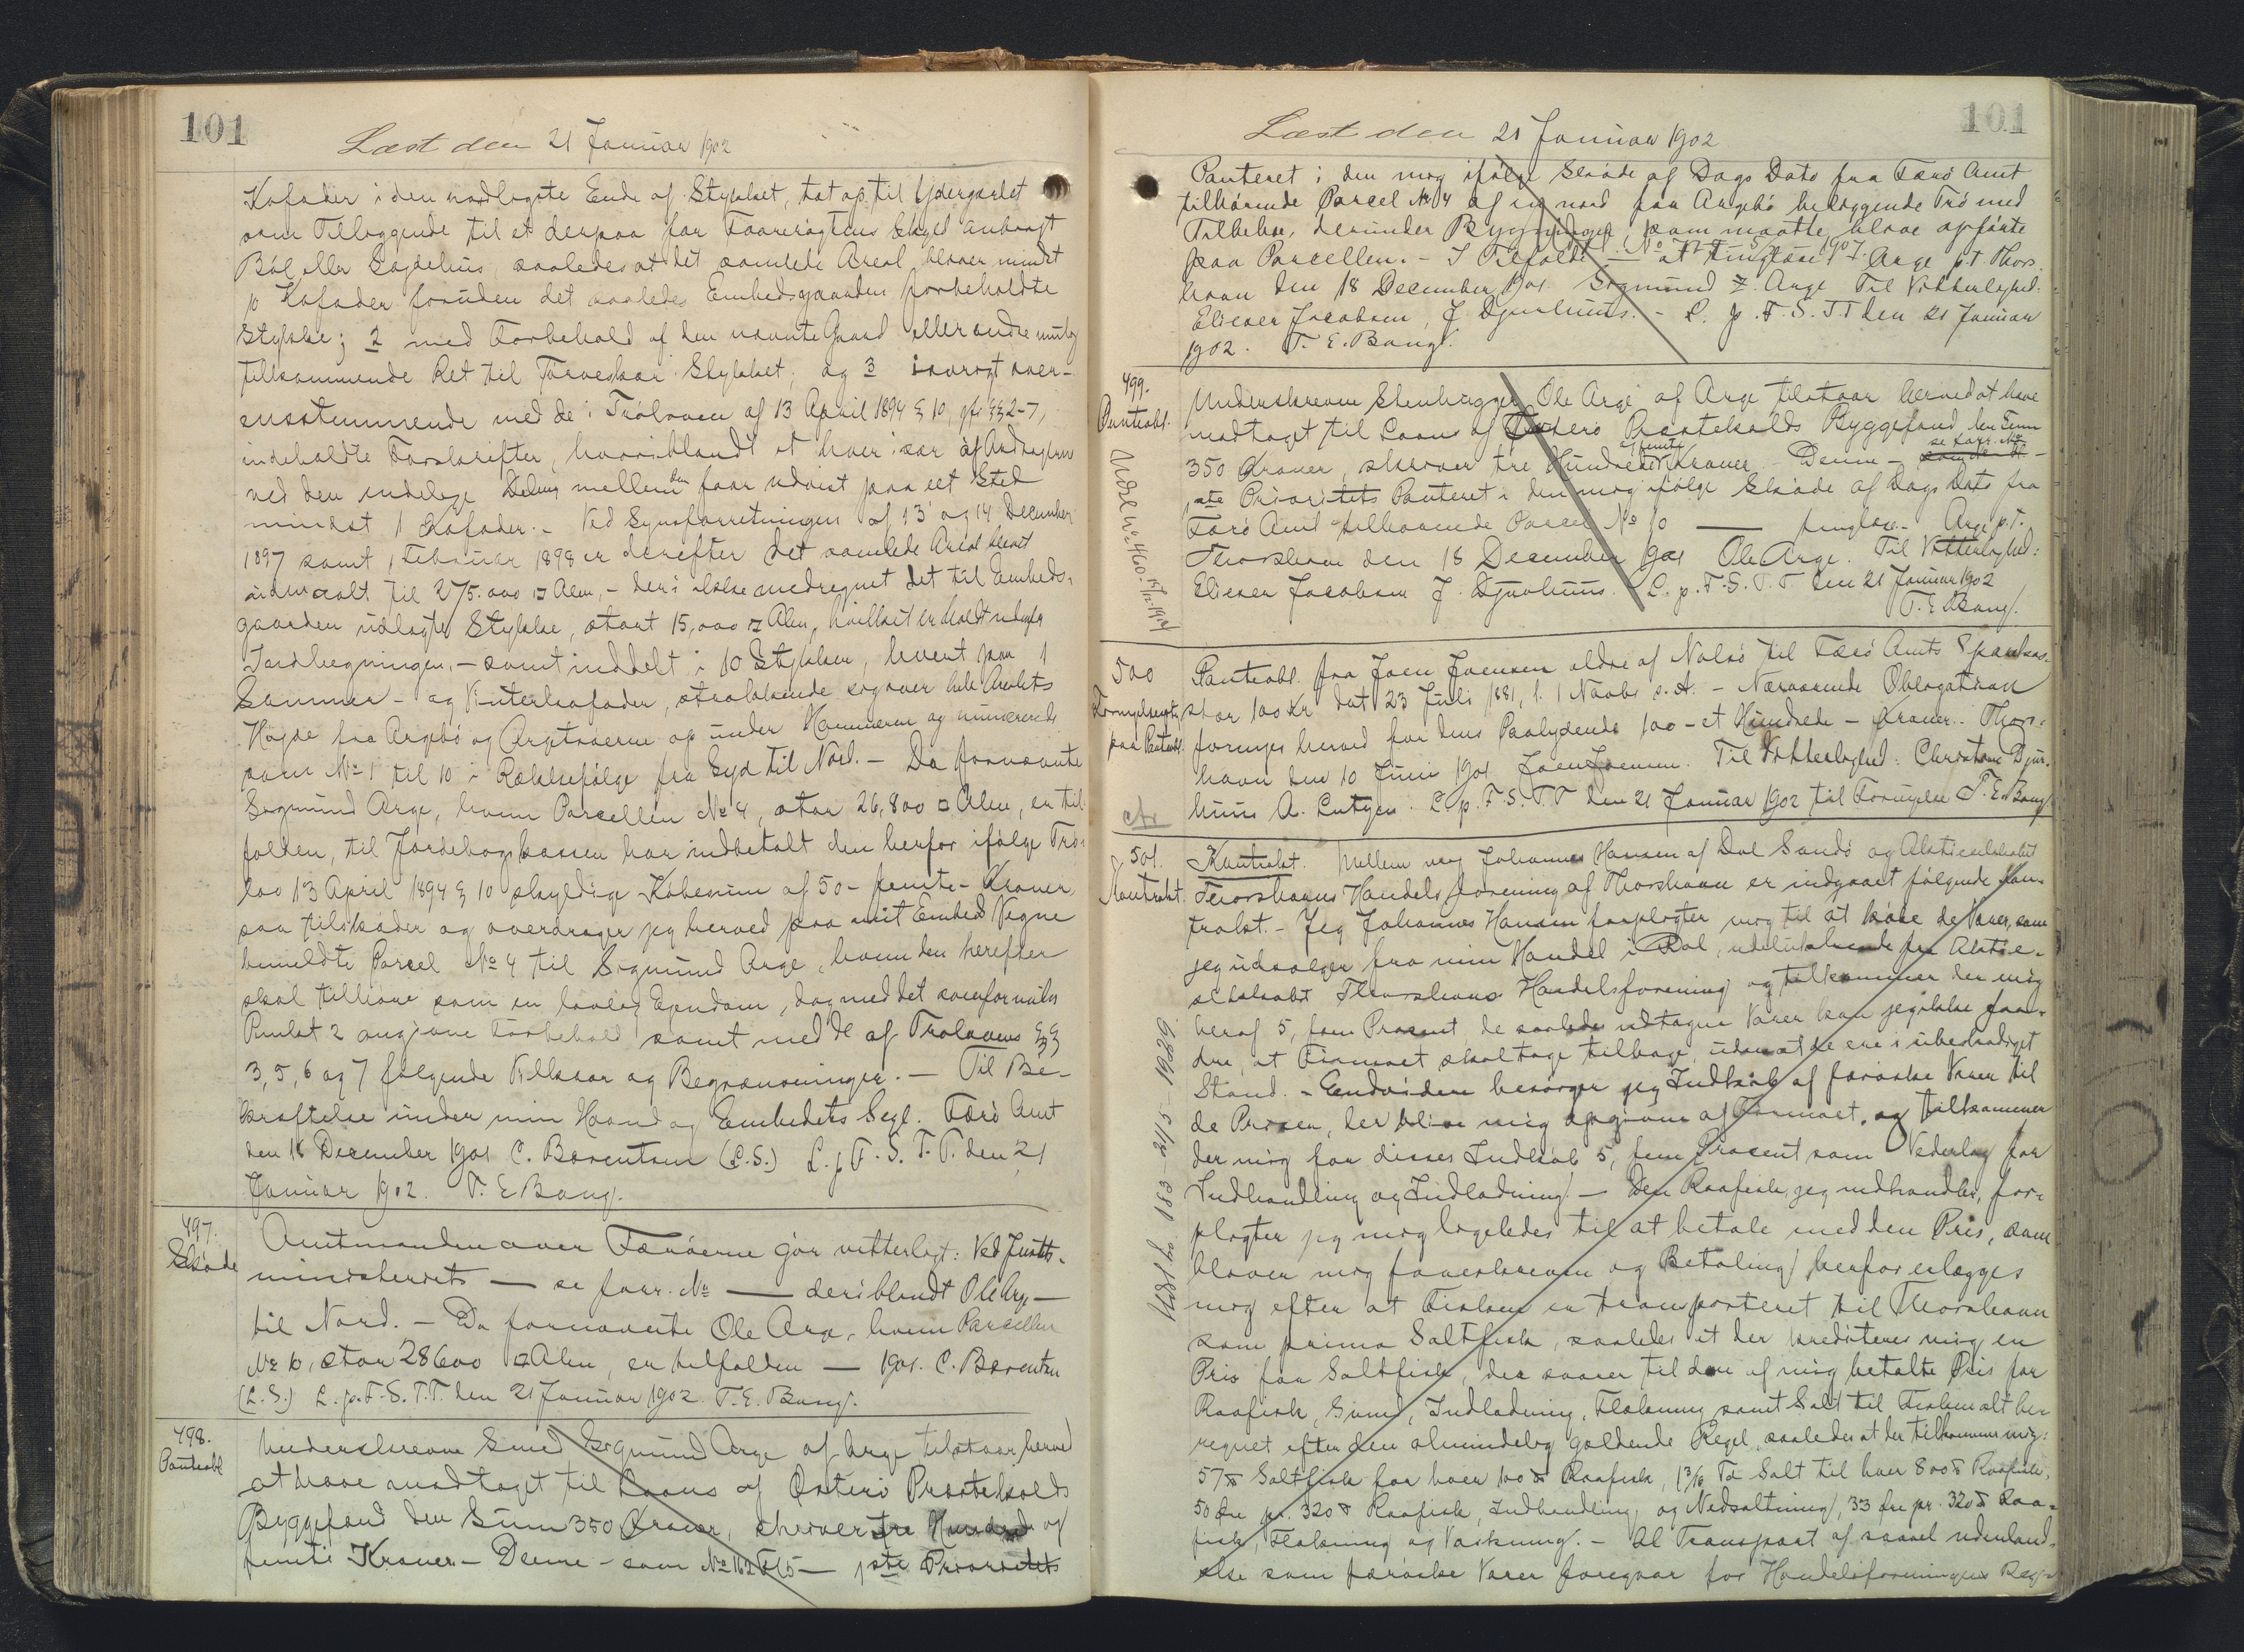 101
Læst den 21 Januar 1902
Kofoder i den nordligste Ende af Stykket, tæt op til Ydergærdet
som Tilliggende til et derpaa for Faarerøgtens Skyld anbragt
Bøl eller Sagdehus, saaledes at det samlede Areal bliver mindst
10 Kofoder foruden det saaledes Embedsgaarden forbeholdte
Stykke; 2 med Forbehold af den nævnte Gaard eller andre mulig
tilkommende Ret til Tørveskær i Stykket; og 3 iøvrigt over-
ensstemmende med de i Trøloven af 13 April 1894 § 10, jfr. §§ 2-7,
indeholdte Forskrifter, hvoriblandt at hver især af Andragerne
ved den endelige Deling mellem dem faar udvist paa eet Sted
mindst 1 Kofoder. - Ved Synsforretningen af 13 og 14 December
1897 samt 1 Februar 1898 er derefter det samlede Areal blevet
udmaalt til 275.000 □ Alen, - deri ikke medregnet det til Embeds-
gaarden udlagte Stykke, stort 15,000 □ Alen, hvilket er holdt udenfor
Jordlægningen, - samt inddelt i 10 Stykker, hvert paa 1
Sommer- og Vinterkofoder, strækkende sig over hele Arealets
Højde fra Argebø og Argetrøerne op under Hamrene og numererede
som No 1 til 10 i Rækkefølge fra Syd til Nord. - Da fornævnte
Sigmund Arge, hvem Parcellen No 4, stor 26,800 □ Alen, er til-
falden, til Jordebogskassen har indbetalt den herfor ifølge Trø-
lov 13 April 1894 § 10 skyldige Købesum af 50 - femti - Kroner,
saa tilskøder og overdrager jeg herved paa mit Embeds Vegne
bemeldte Parcel No 4 til Sigmund Arge, hvem den herefter
skal tilhøre som en lovlig Ejendom, dog med det ovenfor under
Punkt 2 angivne Forbehold samt med de af Trølovens §§
3, 5, 6 og 7 følgende Vilkaar og Begrænsninger. - Til Be-
kræftelse under min Haand og Embedets Segl. Færø Amt
den 18 December 1901 C. Bærentsen (L.S.) L. p. F. S. T. T. den 21
Januar 1902. T. E Bang.
497.
Skøde
Amtmanden over Færøerne gør vitterligt: Ved Justits-
ministeriets — se forr. No — deriblandt Ole Arge —
til Nord. - Da fornævnte Ole Arge, hvem Parcellen
No 10, stor 28600 □ Alen, er tilfalden — 1901. C. Bærentsen
(L.S.) L. p. F. S. T. T. den 21 Januar 1902. T. E. Bang.
498.
Panteobl
Underskrevne Smed Sigmund Arge af Arge tilstaar herved
at have modtaget til Laans af Østerø Præstekalds
Byggefond den Sum 350 Kroner, skriver tre Hundrede og
femti Kroner - Denne - som No 162 — 1ste Prioritets
101
Læst den 21 Januar 1902
Panteret i den mig ifølge Skøde af Dags Dato fra Færø Amt
tilhørende Parcel No 4 af en nord for Argebø beliggende Trø med
Tilbehør, derunder Bygninger, som maatte blive opførte
paa Parcellen. - I Tilfælde — at tinglæse. Arge p.t. Thors-
havn den 18 December 1901. Sigmund Arge Til Vitterlighed:
Elieser Jacobsen, J Djurhuus. - L. p. F. S. T. T den 21 Januar
1902. T. E. Bang.
499.
Panteobl.
Udsl. No 460. 15/12 1914
Underskrevne Stenhugger Ole Arge af Arge tilstaar herved at have
modtaget til Laans af Østerø Præstekalds Byggefond den Sum
350 Kroner, skriver tre Hundrede femti Kroner - Denne - se forr. No -
1ste Prioritets Panteret i den mig ifølge Skøde af Dags Dato fra
Færø Amt tilhørende Parcel No 10 — tinglæse. - Arge p.t.
Thorshavn den 18 December 1901 Ole Arge. Til Vitterlighed:
Elieser Jacobsen J. Djurhuus. L. p. F. S. T. T den 21 Januar 1902
T. E Bang.
500
Fornyelsespaat.
paa Panteobl.
Panteobl. fra Joen Joensen ældre af Nolsø til Færø Amts Sparekas.
stor 100 Kr dat 23 Juli 1881, l. 1 Novbr s. A. - Nærværende Obligation
fornyes herved for dens Paalydende 100 - et Hundrede - Kroner. - Thors-
havn den 10 Juni 1901 Joen Joensen. Til Vitterlighed: Christiane Djur-
huus A. Lutzen. L. p. F. S. T. T den 21 Januar 1902 til Fornyelse T. E. Bang
501.
Kontrakt.
Kontrakt. Mellem mig Johannes Hansen af Dal Sandø og Aktieselskabet
Thorshavns Handelsforening af Thorshavn er indgaaet følgende Kon-
trakt. - Jeg Johannes Hansen forpligter mig til at købe de Varer, som
jeg udsælger fra min Handel i Dal, udelukkende fra Aktie-
selskabet Thorshavns Handelsforening og tilkommer der mig
heraf 5, fem Procent, de saaledes udtagne Varer kan jeg ikke for-
dre, at Firmaet skal tage tilbage, uden at de ere i ubeskadiget
Stand. - Endvidere besørger jeg Indkøb af færøske Varer til
de Priser, der blive mig opgivne af Firmaet, og tilkommer
der mig for disses Indkøb 5, fem Procent som Vederlag for
Indhandling og Indladning. - Den Raafisk, jeg indhandler, for-
pligter jeg mig ligeledes til at betale med den Pris, som
bliver mig foreskreven og Betaling herfor erlægges
mig efter at Fisken er transporteret til Thorshavn
som prima Saltfisk, saaledes at der krediteres mig en
Pris for Saltfisk, der svarer til den af mig betalte Pris for
Raafisk, Svind, Indladning, Flækning samt Salt til Fisken alt be-
regnet efter den almindelig gældende Regel, saaledes at der tilkommer mig:
57 ℔ Saltfisk for hver 100 ℔ Raafisk, 1 3/16 Td Salt til hver 800 ℔ Raafisk,
50 Øre pr. 320 ℔ Raafisk, Indhandling og Nedsaltning, 33 Øre pr. 320 ℔ Raa-
fisk, Flækning og Vaskning. - Al Transport af saavel udenland-
ske som færøske Varer foregaar for Handelsforeningens Reg-